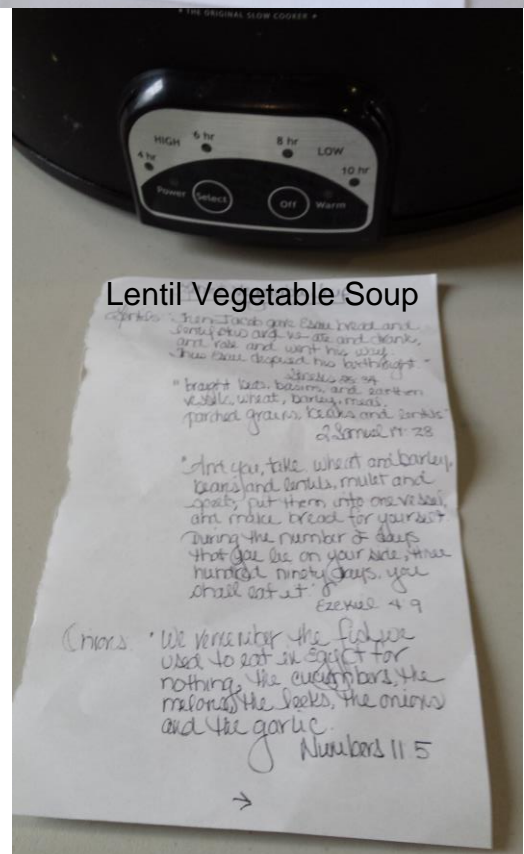 • THE ORIGINAL SLOW COOKER •
HIGH 6 hr 8 hr LOW
4 hr 10 hr
Power Select Off Warm
Lentil Vegetable Soup
Lentils "Then Jacob gave Esau bread and
lentil stew and he ate and drank,
and rose and went his way.
Thus Esau despised his birthright."
25:34
"brought beds, basins, and earthen
vessels, wheat, barley, meal,
parched grains, beans and lentils"
2 Samuel 17:28
"And you, take wheat and barley,
beans and lentils, millet and
put them into one vessel,
and make bread for yourself
During the number of days
that you lie on your side, three
hundred ninety days, you
shall eat it."
Ezekiel 4 9
Onions "We remember the fish we
used to eat in Egypt for
nothing, the cucumbers, the
melons, the leeks, the onions
and the garlic.
Numbers 11 5
→